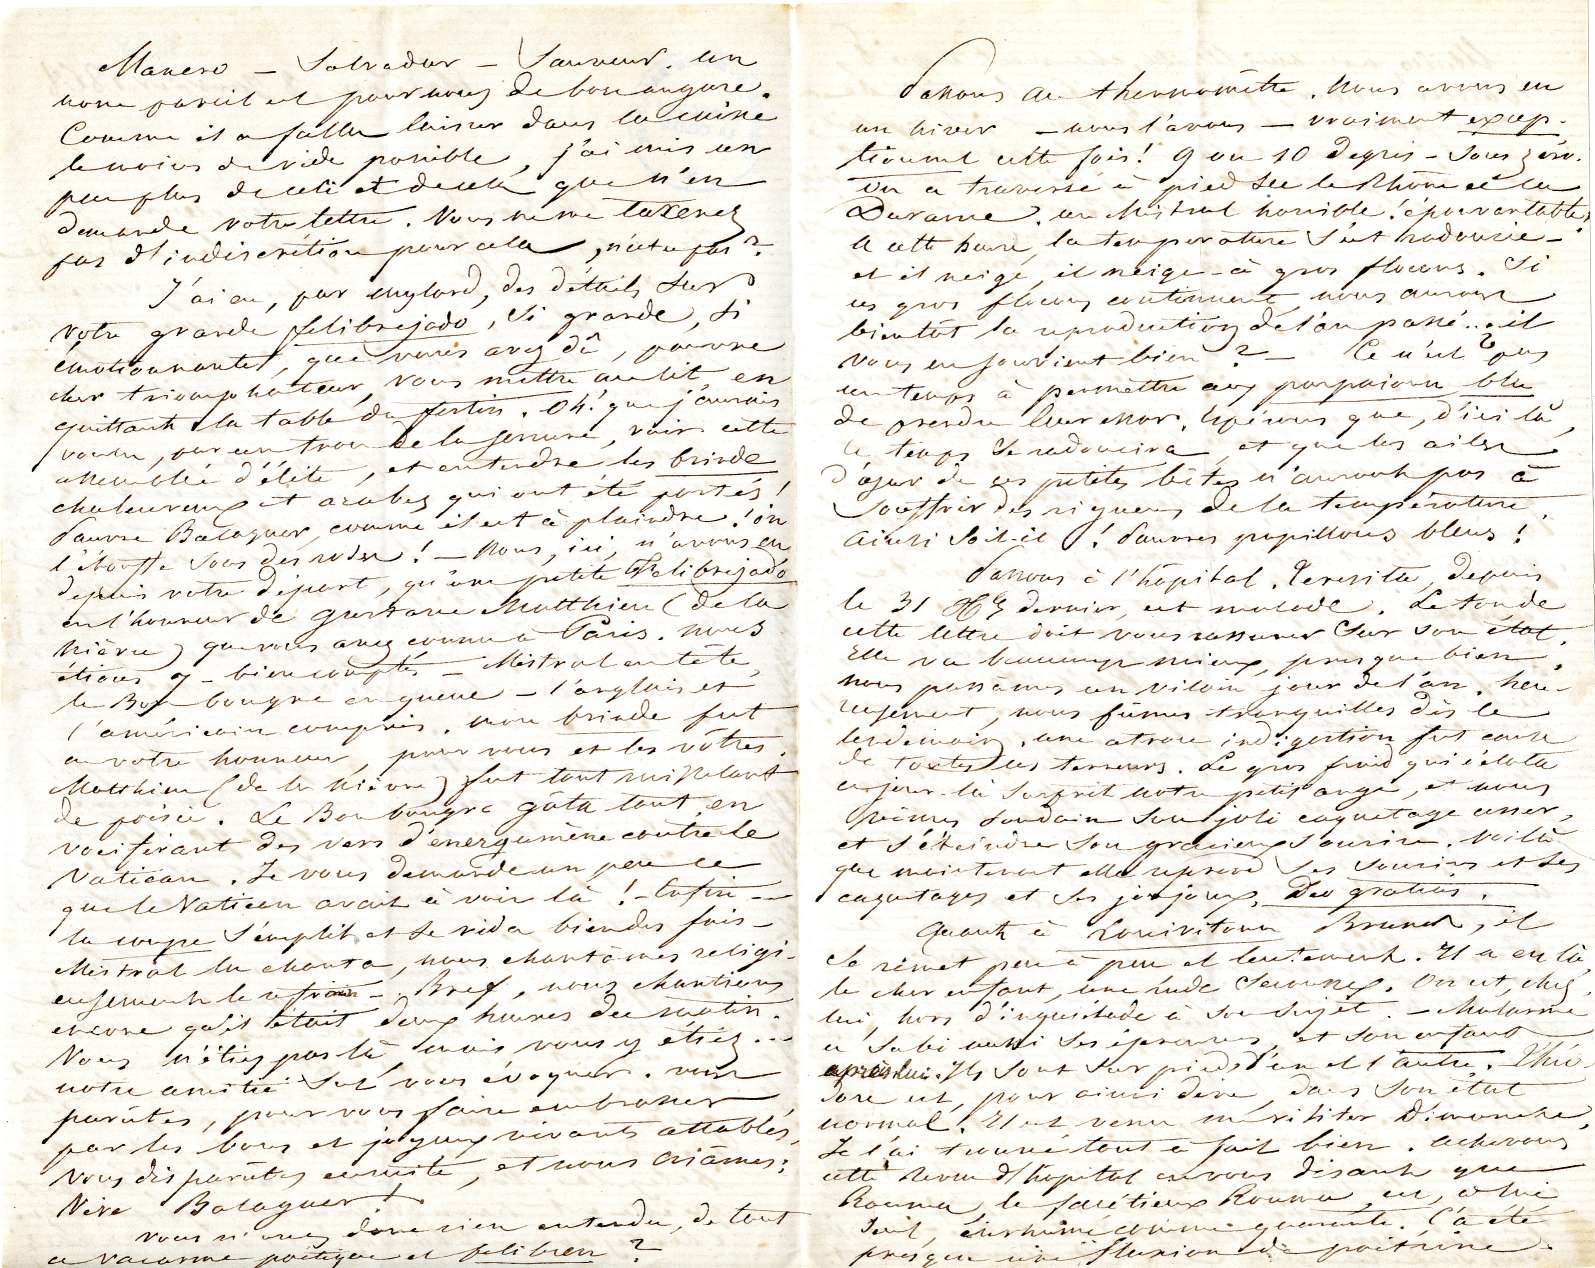 Manero — Salvador — Sauveur. un
nom pareil est pour nous de bon augure.
Comme il a fallu laisser dans la caisse
le moins de vide possible, j'ai mis un
peu plus de ceci et de cela que n'en
demande votre lettre. Vous ne me taxerez
pas d'indiscrétion pour cela, n'est-ce pas?
J'ai eu, par mylord, des détails sur
votre grande felibrejado, si grande, si
émotionnante, que vous avez dû, pauvre
cher triomphateur, vous mettre au lit en
quittant la table du festin. Oh! que j'aurais
voulu, par un trou de la serrure, voir cette
assemblée d'élite, et entendre les brinde
chaleureux et arabes qui ont été portés!
Pauvre Balaguer, comme il est à plaindre! on
l'étouffe sous des roses! — Nous, ici, n'avons eu
depuis votre départ, qu'une petite Felibrejado
en l'honneur de Gustave Matthieu (de la
Nièvre) que vous avez connu à Paris. nous
étions 9 — bien comptés — Mistral en tête,
le Bon bougre en queue — l'anglais et
l'américain compris. mon brinde fut
en votre honneur, pour vous et les vôtres.
Matthieu (de la Nièvre) fut tout ruisselant
de poésie. Le Bon bougre gâta tout, en
vociférant des vers d'énergumène contre le
Vatican. Je vous demande un peu ce
que le Vatican avait à voir là! — Enfin —
la coupe s'emplit et se vida bien des fois —
Mistral la chanta, nous chantâmes religi-
eusement le refrain — Bref, nous chantions
encore qu'il était deux heures du matin.
Vous n'étiez pas là, mais vous y étiez...
notre amitié sut vous évoquer. vous
parûtes, pour vous faire embrasser
par les bons et joyeux vivants attablés,
vous disparûtes ensuite, et nous criâmes:
Vive Balaguer!
Vous n'avez donc rien entendu, de tout
ce vacarme poétique et felibren?
Passons au thermomètre. Nous avons eu
un hiver — nous l'avons — vraiment excep-
tionnel cette fois! 9 ou 10 degrés — sous zéro.
On a traversé à pied sec le Rhône et la
Durance. un Mistral horrible! épouvantable!
A cette heure, la température s'est radoucie —
et il neige, il neige — à gros flocons. Si
ces gros flocons continuent, nous aurons
bientôt la reproduction de l'an passé... il
vous en souvient bien? — Ce n'est pas
un temps à permettre aux parpaioun blu
de prendre leur essor. Espérons que, d'ici là,
le temps se radoucira, et que les ailes
d'azur de ces petites bêtes n'auront pas à
souffrir des rigueurs de la température.
Ainsi soit-il! Pauvres papillons bleus!
Passons à l'hôpital. Teresita, depuis
le 31 Xbre dernier, est malade. Le ton de
cette lettre doit vous rassurer sur son état.
Elle va beaucoup mieux, presque bien.
nous passâmes un vilain jour de l'an. heu-
reusement, nous fûmes tranquilles dès le
lendemain. une atroce indigestion fut cause
de toutes les terreurs. Le gros froid qui éclata
ce jour-là surprit notre petit ange, et nous
vîmes soudain son joli caquetage cesser,
et s'éteindre son gracieux sourire. Voilà
que maintenant elle reprend ses sourires et ses
caquetages et ses joujoux. Deo gratias.
Quant à Louivitoun Brunet, il
se remet peu à peu et lentement. Il a eu là
le cher enfant, une rude secousse. On est, chez
lui, hors d'inquiétude à son sujet. — Malarmé
a subi aussi ses épreuves, et son enfant
après lui. Ils sont sur pied l'un et l'autre. Théo-
dore est, pour ainsi dire, dans son état
normal. Il est venu me visiter Dimanche,
Je l'ai trouvé tout à fait bien. achevons
cette revue d'hôpital en vous disant que
Rouma, le facétieux Rouma, est, ce
soir, enrhumé comme quarante. Ç'a été
presque une fluxion de poitrine.